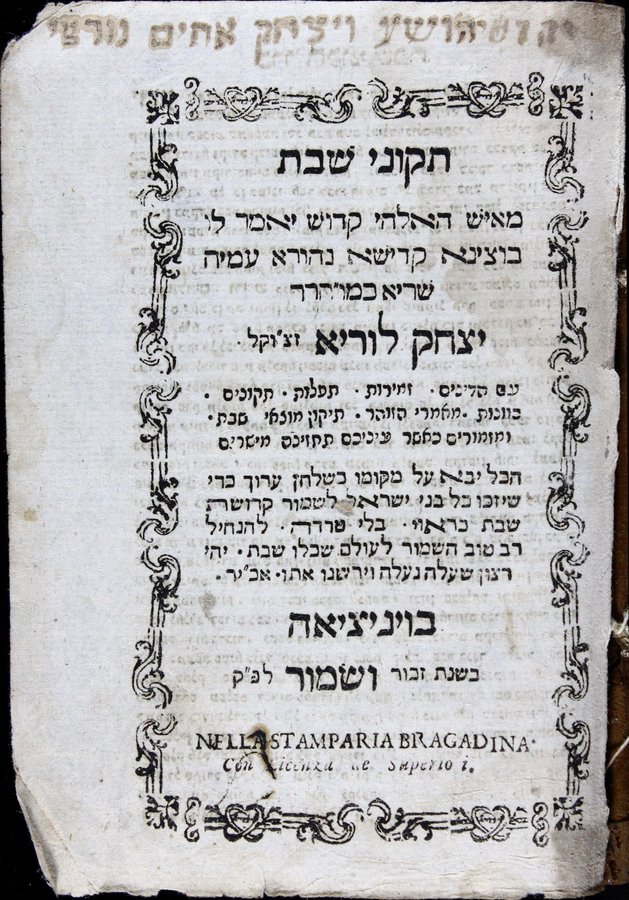 יהושע ויצחק אחים נורצי
תקוני שבת
מאיש האלהי קדוש יאמר לו
בוצינא קדישא נהורא עמיה
שריא כמו״הרר
יצחק לוריא זצ״וקל
עם הדינים · זמירות · תפלות · תקונים ·
כוונות · מאמרי הזוהר · תיקון מוצאי שבת ·
ומזמורים כאשר עיניכם תחזינה מישרים
הכל יבא על מקומו כשלחן ערוך כדי
שיזכו כל בני ישראל לשמור קדושת
שבת כראוי · בלי טרדה · להנחיל
רב טוב השמור לעולם שכלו שבת · יהי
רצון שעלה נעלה וירשנו אתו · אכי״ר ·
בויניציאה
בשנת זכור ושמור לפ״ק
NELLA STAMPARIA BRAGADINA·
Con Licenza de Superio i.